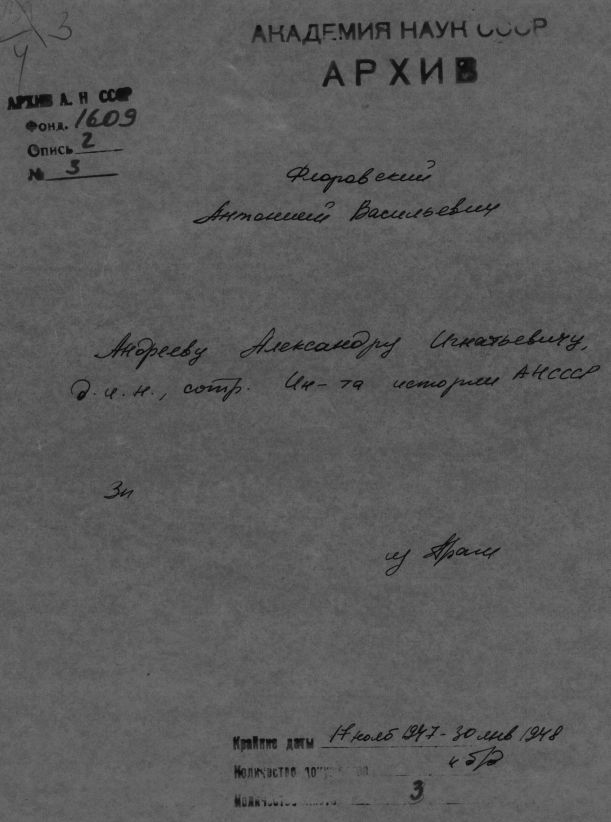 3
4
АКАДЕМИЯ НАУК СССР
АРХИВ
АРХИВ А. Н СССР
Фонд. 1609
Опись 2
№ 3
Флоровский
Антоний Васильевич
Андрееву Александру Игнатьевичу,
д.и.н., сотр. Ин-та истории АНСССР
3п
из Праги
Крайние даты 17 нояб 1947 - 30 янв 1948
и б/д
Количество
Количество 3